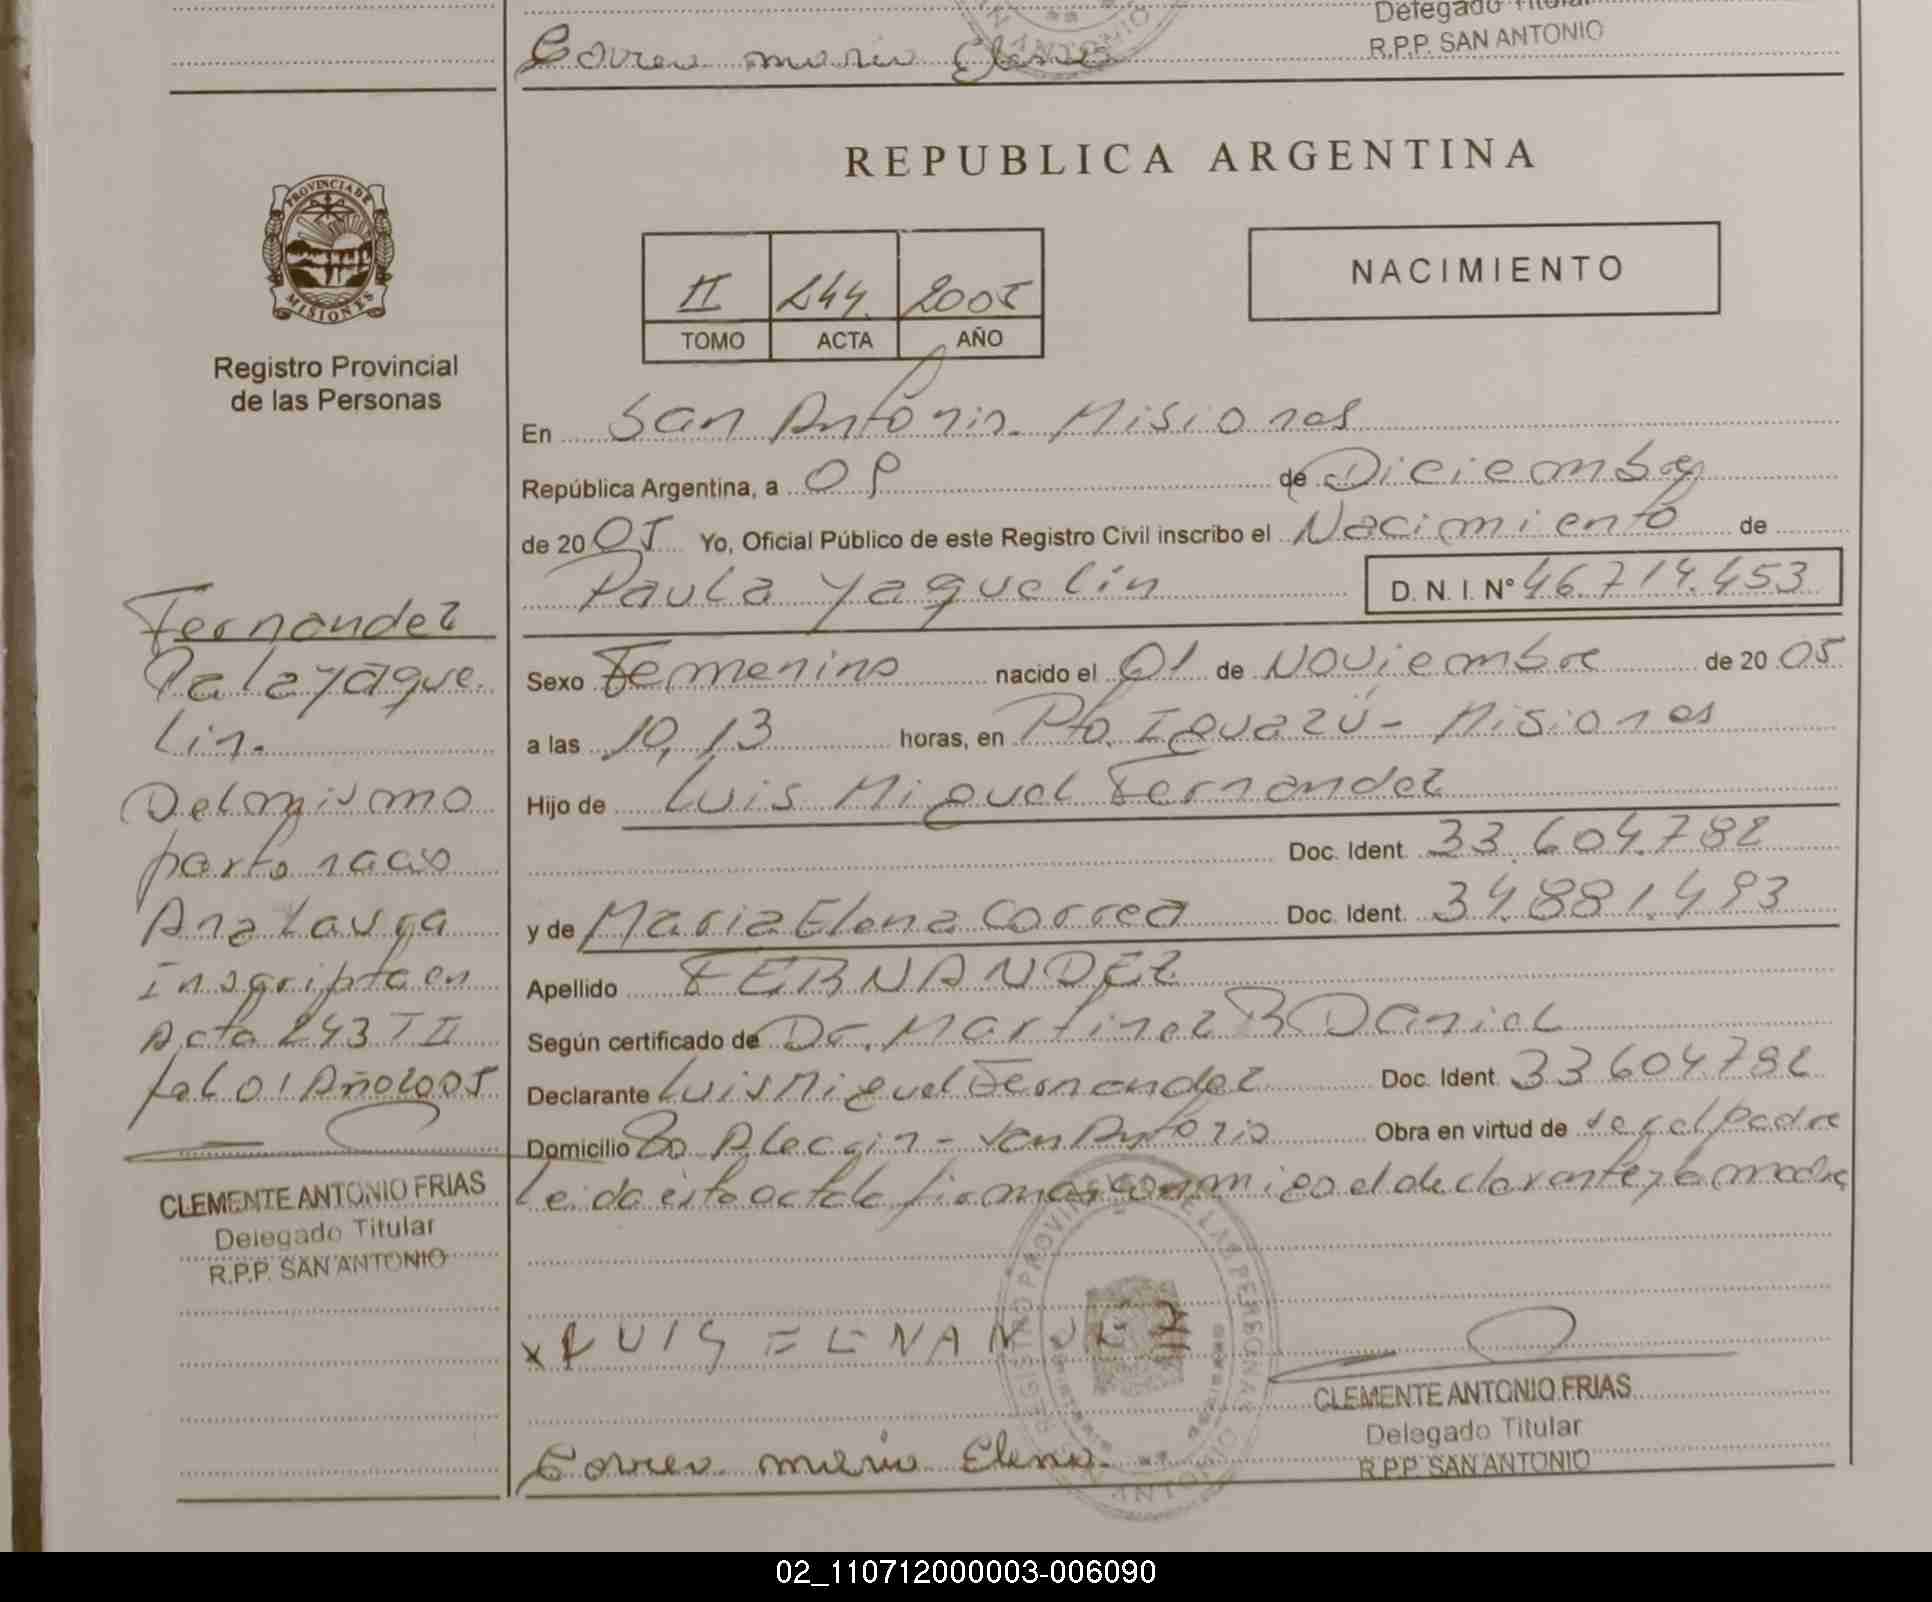 Delegado Titular
R.P.P. SAN ANTONIO
Correa maria Elena
ANTONIO
REPUBLICA ARGENTINA
PROVINCIA DE
MISIONES
Registro Provincial
de las Personas
II 244. 2005
TOMO ACTA AÑO
NACIMIENTO
En San Antonio. Misiones
República Argentina, a 09 de Diciembre
de 20 05 Yo, Oficial Público de este Registro Civil inscribo el Nacimiento de
Paula Yaquelin D. N. I. Nº 46.714.453
Sexo Femenino nacido el 01 de Noviembre de 20 05
a las 10,13 horas, en Pto. Iguazú - Misiones
Hijo de Luis Miguel Fernandez
Doc. Ident. 33.604.782
y de Maria Elena Correa Doc. Ident. 34.881.493
Apellido FERNANDEZ
Según certificado de Dr. Martinez R Daniel
Declarante Luis Miguel Fernandez Doc. Ident. 33604782
Domicilio Bo - San Antonio Obra en virtud de ser el padre
Leida esta acta la firman conmigo el declarante y la madre
Fernandez
Yaque
lin.
Del mismo
parto nacio
Ana Laura
Inscripta en
Acta 243 T II
fol 01 Año 2005
CLEMENTE ANTONIO FRIAS
Delegado Titular
R.P.P. SAN ANTONIO
REGISTRO PROVINCIAL DE LAS PERSONAS
x LUIS
CLEMENTE ANTONIO FRIAS
Delegado Titular
R.P.P. SAN ANTONIO
Correa maria Elena.
ANTONIO
02_110712000003-006090